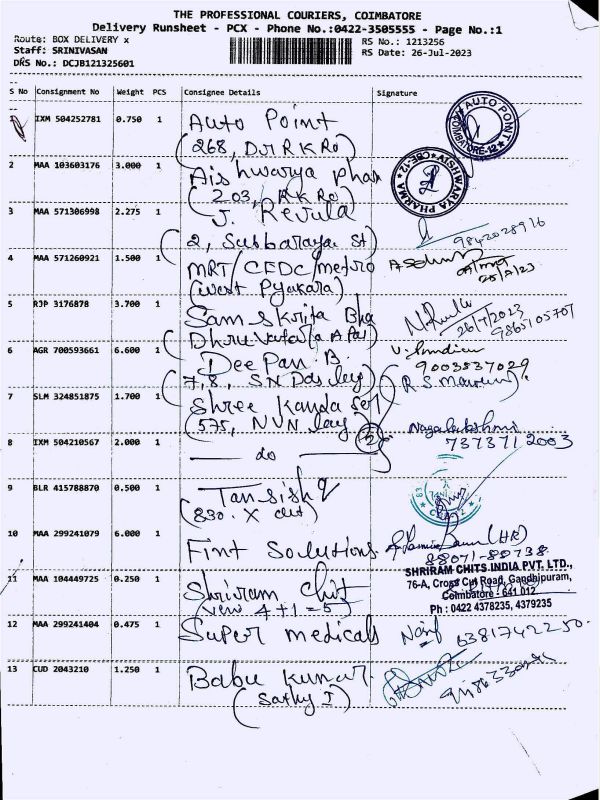 THE PROFESSIONAL COURIERS, COIMBATORE
Delivery Runsheet - PCX - Phone No.:0422-3505555 - Page No.:1
Route: BOX DELIVERY x
RS No.: 1213256
Staff: SRINIVASAN
RS Date: 26-Jul-2023
DRS No.: DCJB121325601
S No Consignment No Weight PCS Consignee Details Signature
1 IXM 504252781 0.750 1 Auto Point
(268, D.r R K Ro)
AUTO POINT
COIMBATORE-12
2 MAA 103603176 3.000 1 Aishwarya Phar
(203, R.K Ro)
AISHWARYA PHARMA
CBE-12
3 MAA 571306998 2.275 1 J. Revula
(2, Subbaraya St)
9842028916
4 MAA 571260921 1.500 1 MRT/CEDC/metro
(west Pyakara)
5 RJP 3176878 3.700 1 Samskrita Bha
(Dhruvatara Apa)
26/7/2023
9865105707
6 AGR 700593661 6.600 1 Deepan. B.
(7,8, SN Das lay)
9003837029
7 SLM 324851875 1.700 1 Shree Kanda Ser
(575, NVN lay)
Nagalakshmi
737371 2003
8 IXM 504210567 2.000 1 do
2
9 BLR 415788870 0.500 1 Tansishq
(830. X cut)
10 MAA 299241079 6.000 1 Fint Solutions.
(HR)
88071-88738
11 MAA 104449725 0.250 1 Shriram Chit
(view 4+1=5)
SHRIRAM CHITS INDIA PVT. LTD.,
76-A, Cross Cut Road, Gandhipuram,
Coimbatore - 641 012
Ph : 0422 4378235, 4379235
12 MAA 299241404 0.475 1 Super medicals
6381742250
13 CUD 2043210 1.250 1 Babu Kumar
(Sathy I)